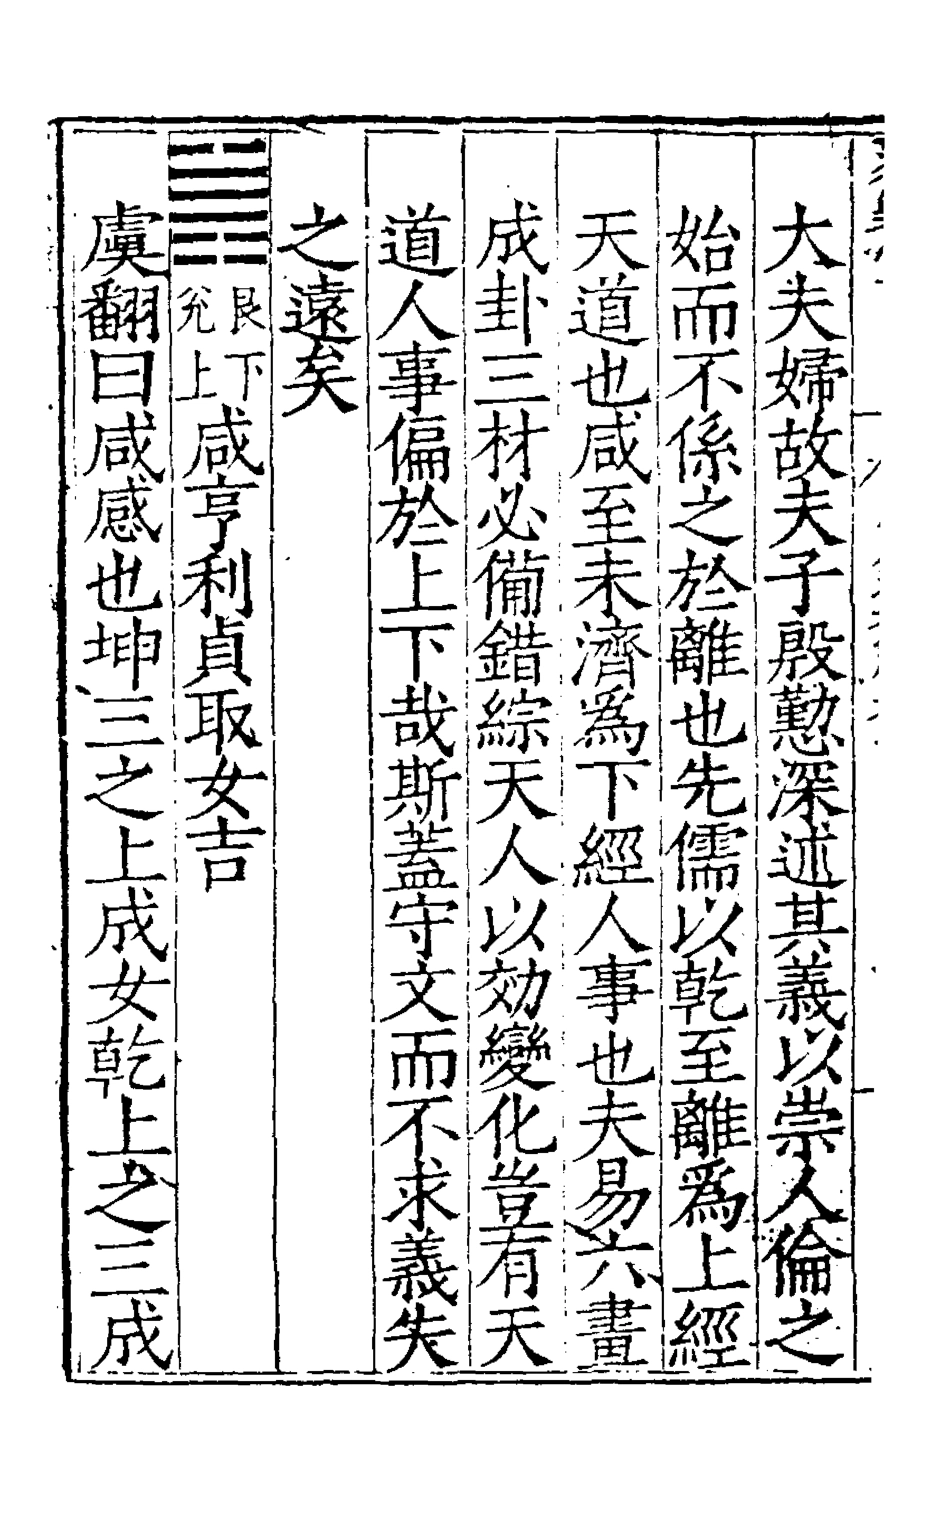 大夫婦故夫子殷懃深述其義以崇人倫之
始而不係之於離也先儒以乾至離爲上經
天道也咸至未濟爲下經人事也夫易六畫
成卦三材必備錯綜天人以効變化豈有天
道人事偏於上下哉斯蓋守文而不求義失
之遠矣
䷞艮下兊上咸亨利貞取女吉
虞翻曰咸感也坤三之上成女乾上之三成